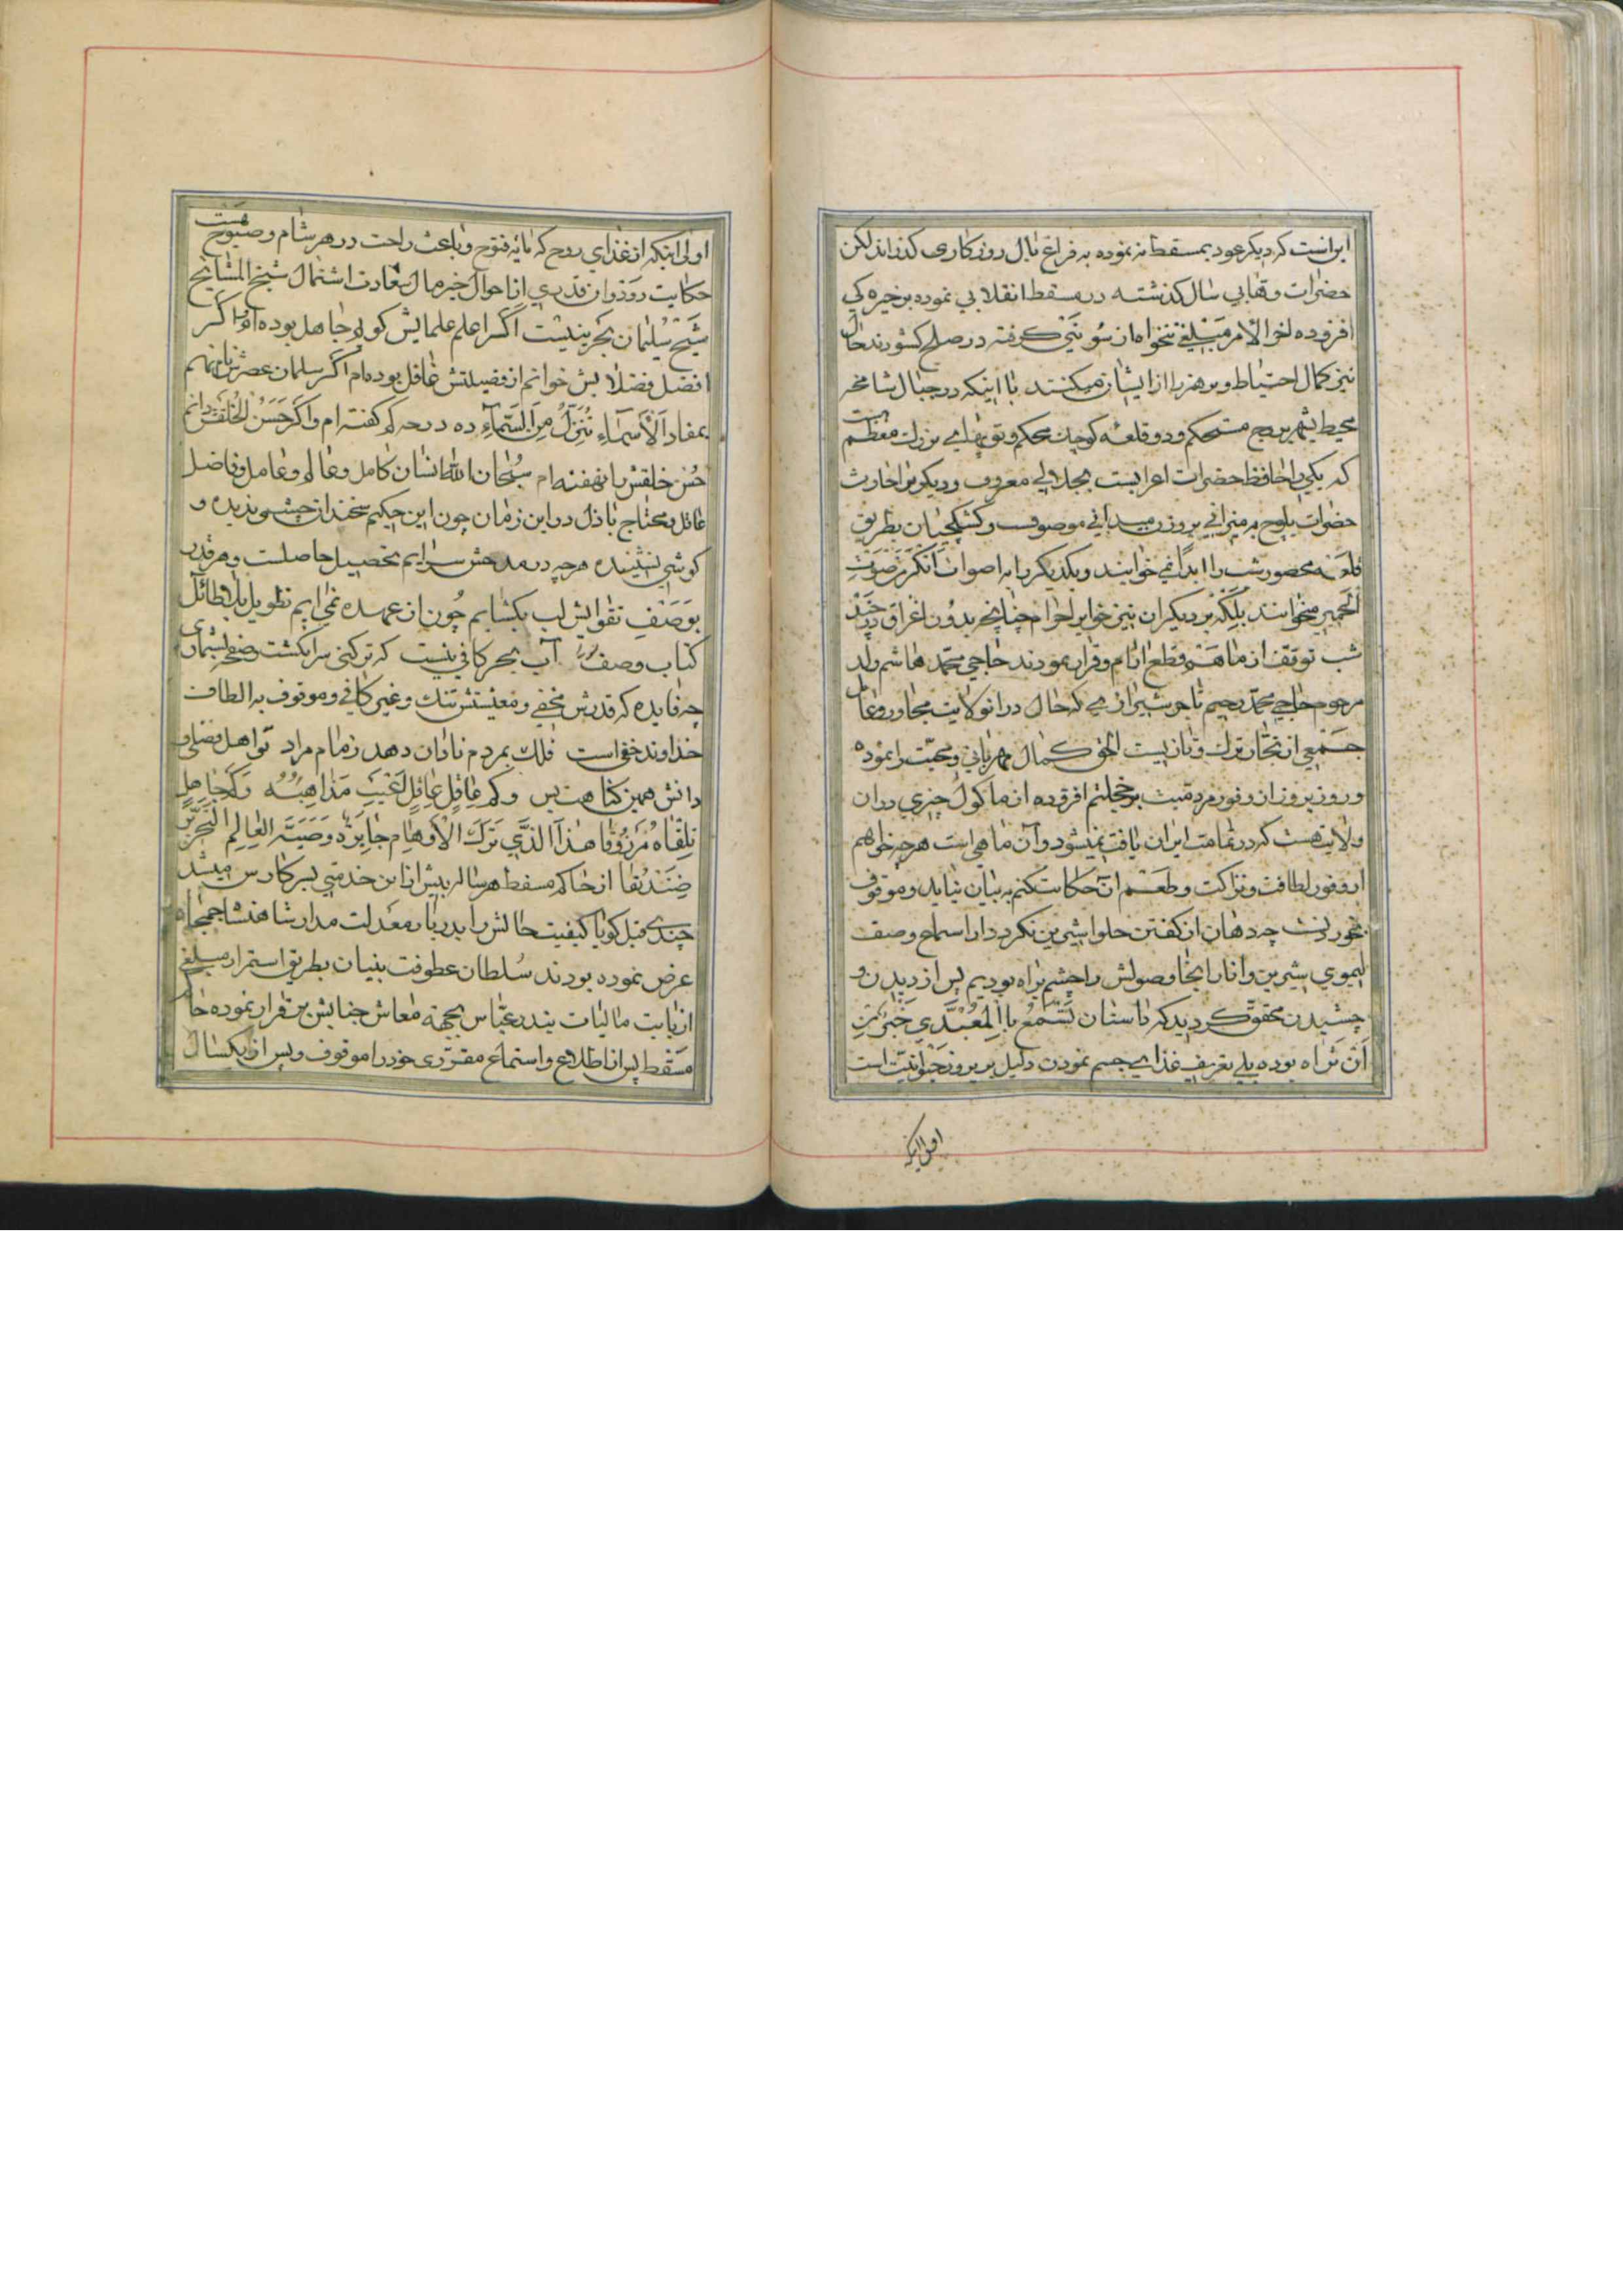 ایرانست که دیگر عود بمسقط نه نموده به فراغ بال روزکاری کذراند لکن
حضرات وهابی سال کذشته در مسقط انقلابی نموده بر خیره کی
افزوده اخر الامر مبلغی تنخواه از سونیتی کرفته در صلح کشودند حال
نیز کمال احتیاط و پرهیز را از ایشان میکنند با اینکه در جبال شامخه
محیط بشهر بروج مستحکم و دو قلعه کوچک محکم و توپهای بزرک معظم هست
که یکی را حافظ حضرات اعرابست بجدالی معروف و دیکری را حارث
حضرات بلوچ بر میرانی بروز میدانی موصوف و کشکچیان بطریق
قلعه محصور شب را ابدا نمی خوابند و یکدیکر را به اصوات انکر من صوت
الحمیر میخوانند بلکه بر دیکران نیز خواب حرام چنانچه بدون اغراق در چند
شب توقف از ما هم قطع انام و قرار نمودند حاجی محمد هاشم ولد
مرحوم حاجی محمد رحیم تاجر شیرازی که حال در انولایت مجاور و عامل
جمعی از تجار ترک و تازیست الحق کمال مهربانی و محبت را نموده
و روز بروز از وفور مردمیت بر خجلتم افزوده از ماکول چیزی در ان
ولایت هست که در تمامت ایران یافت نمیشود و آن ماهی است هر چه خواهم
از وفور لطافت و نزاکت و طعم آن حکایت کنم به بیان نیاید و موقوف
بخوردنست چه دهان از کفتن حلوا شیرین نکردد از استماع وصف
لیموی شیرین و انار انجا وصولش را چشم براه بودیم پس از دیدن و
چشیدن محقق کردید که داستان تسمع بالمعیدی خیر من
ان تراه بوده بلی تعریف غذای جسم نمودن دلیل بر بروز حیوانیت است
اولی اینکه
اولی اینکه از غذای روح که مایه فتوح و باعث راحت در هر شام و صبوح هست
حکایت رود و از قدری از احوال خیر مال سعادت اشتمال شیخ المشایخ
شیخ سلیمان بحرینیست اکر اعلم علمایش کویم جاهل بوده ام و اکر
افضل فضلایش خوانم از فضیلتش غافل بوده ام اکر سلمان عصرش نامم
بمفاد الاسماء تنزل من السماء ده در صد کم کفته ام و اکر حسن الخلقش دانم
حسن خلقش را نهفته ام سبحان الله انسان کامل و عالم و عامل و فاضل
عاقل محتاج باذل در این زمان چون این حکیم سخندان چشمی ندیده و
کوشی نشنیده هر چه در مدحش سرایم تحصیل حاصلست و هر قدر
بوصف تقوایش لب بکشایم چون از عهده نمی ایم تطویل بلا طائل
کتاب وصف ترا آب بحر کافی نیست که تر کنی سر انکشت و صفحه بشماری
چه فایده که قدرش مخفی و معیشتش تنک و غیر کافی و موقوف به الطاف
خداوند خفی است فلک بمردم نادان دهد زمام مراد تو اهل فضلی و
دانش همین کناهت بس و کم عاقل عاقل اعیت مذاهبه و کم جاهل
تلقاه مرزوقا هذا الذی ترک الاوهام حایرة و صیر العالم النحریر
زندیقا از حاکم مسقط هر ساله بیش از این خدمتی بسرکارش میشد
چندی قبل کویا کیفیت حالش را بدربار معدلت مدار شاهنشاه جمجاه
عرض نموده بودند سلطان عطوفت بنیان بطریق استمرار مبلغی
از بابت مالیات بندر عباس بجهة معاش جنابش برقرار نموده حاکم
مسقط پس از اطلاع و استماع مقرری خود را موقوف و پس از یکسال